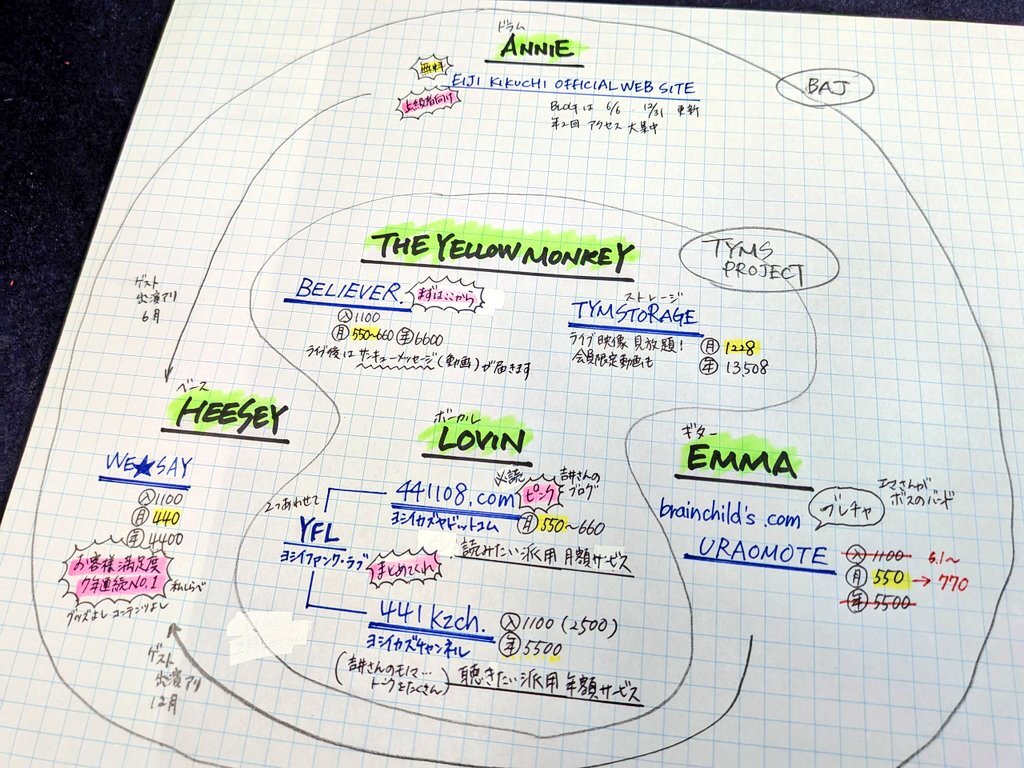 ドラム
ANNIE
無料
EIJI KIKUCHI OFFICIAL WEB SITE
上級者向け
Blogは 6/6 12/31 更新
年2回 アクセス 大集中
BAJ
THE YELLOW MONKEY
TYMS PROJECT
BELIEVER.
まずはここから
入 1100
月 550~660 年 6600
ライブ後は サンキューメッセージ(動画)が届きます
ストレージ
TYMSTORAGE
ライブ映像 見放題!
会員限定動画も
月 1228
年 13508
ゲスト
出演アリ
6月
ベース
HEESEY
WE★SAY
入 1100
月 440
年 4400
お客様満足度
7年連続NO.1
私しらべ
グッズよし コンテンツよし
ゲスト
出演アリ
12月
ボーカル
LOVIN
2つあわせて
YFL
ヨシイファンク・ラブ
まとめてくれ
441108.com
ヨシイカズヤドットコム
必読
ピンク
吉井さんの
ブログ
月 550~660
読みたい派用 月額サービス
441kzch.
ヨシイカズチャンネル
入 1100 (2500)
年 5500
(吉井さんのモノマ…
トークをたくさん)
聴きたい派用 年額サービス
ギター
EMMA
brainchild's.com
ブレチャ
エマさんが
ボスのバンド
URAOMOTE
入 1100
月 550 → 770
年 5500
5.1~